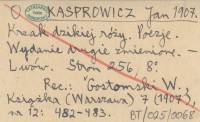 KASPROWICZ Jan 1907.
Krzak dzikiej róży. Poezje.
Wydanie drugie zmienione. -
Lwów. Stron 256, 8°.
Rec.: "Gostomski W.
Książka (Warszawa) 7 (1907),
nr 12: 482-483.
BT/025/0068